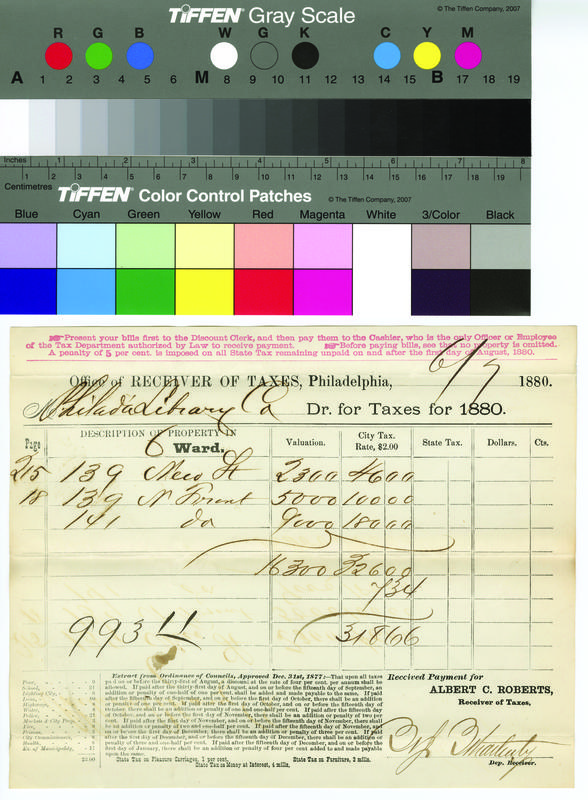 TIFFEN® Gray Scale
© The Tiffen Company, 2007
R G B W G K C Y M
A 1 2 3 4 5 6 M 8 9 10 11 12 13 14 15 B 17 18 19
Inches 1 2 3 4 5 6 7 8
Centimetres 1 2 3 4 5 6 7 8 9 10 11 12 13 14 15 16 17 18 19
TIFFEN® Color Control Patches
© The Tiffen Company, 2007
Blue Cyan Green Yellow Red Magenta White 3/Color Black
☞Present your bills first to the Discount Clerk, and then pay them to the Cashier, who is the only Officer or Employee
of the Tax Department authorized by Law to receive payment. ☞Before paying bills, see that no property is omitted.
A penalty of 5 per cent. is imposed on all State Tax remaining unpaid on and after the first day of August, 1880.
Office of RECEIVER OF TAXES, Philadelphia, 6/7 1880.
M Philada Library Co Dr. for Taxes for 1880.
Page DESCRIPTION OF PROPERTY IN 6 Ward. Valuation. City Tax. Rate, $2.00 State Tax. Dollars. Cts.
215 139 New St 2300 4600
18 139 N Front 5000 10000
141 do 9000 18000
16300 32600
734
9934 31866
Extract from Ordinance of Councils, Approved Dec. 31st, 1877:—That upon all taxes
paid on or before the thirty-first of August, a discount at the rate of four per cent. per annum shall be
allowed. If paid after the thirty-first day of August, and on or before the fifteenth of September, an
addition or penalty of one-half of one per cent. shall be added and made payable to the same. If paid
after the fifteenth day of September, and on or before the first day of October, there shall be an addition
or penalty of one per cent. If paid after the first day of October, and on or before the fifteenth of
October, there shall be an addition or penalty of one and one-half per cent. If paid after the fifteenth day
of October, and on or before the first day of November, there shall be an addition or penalty of two per
cent. If paid after the first day of November, and on or before the fifteenth day of November, there shall
be an addition or penalty of two and one-half per cent. If paid after the fifteenth of November, and
on or before the first day of December, there shall be an addition or penalty of three per cent. If paid
after the first day of December, and on or before the fifteenth day of December, there shall be an addition or
penalty of three and one-half per cent. If paid after the fifteenth day of December, and on or before the
first day of January, there shall be an addition or penalty of four per cent added to and made payable
upon the same.
State Tax on Pleasure Carriages, 1 per cent, State Tax on Furniture, 3 mills.
State Tax on Money at Interest, 4 mills,
Received Payment for
ALBERT C. ROBERTS,
Receiver of Taxes,
Dep. Receiver.